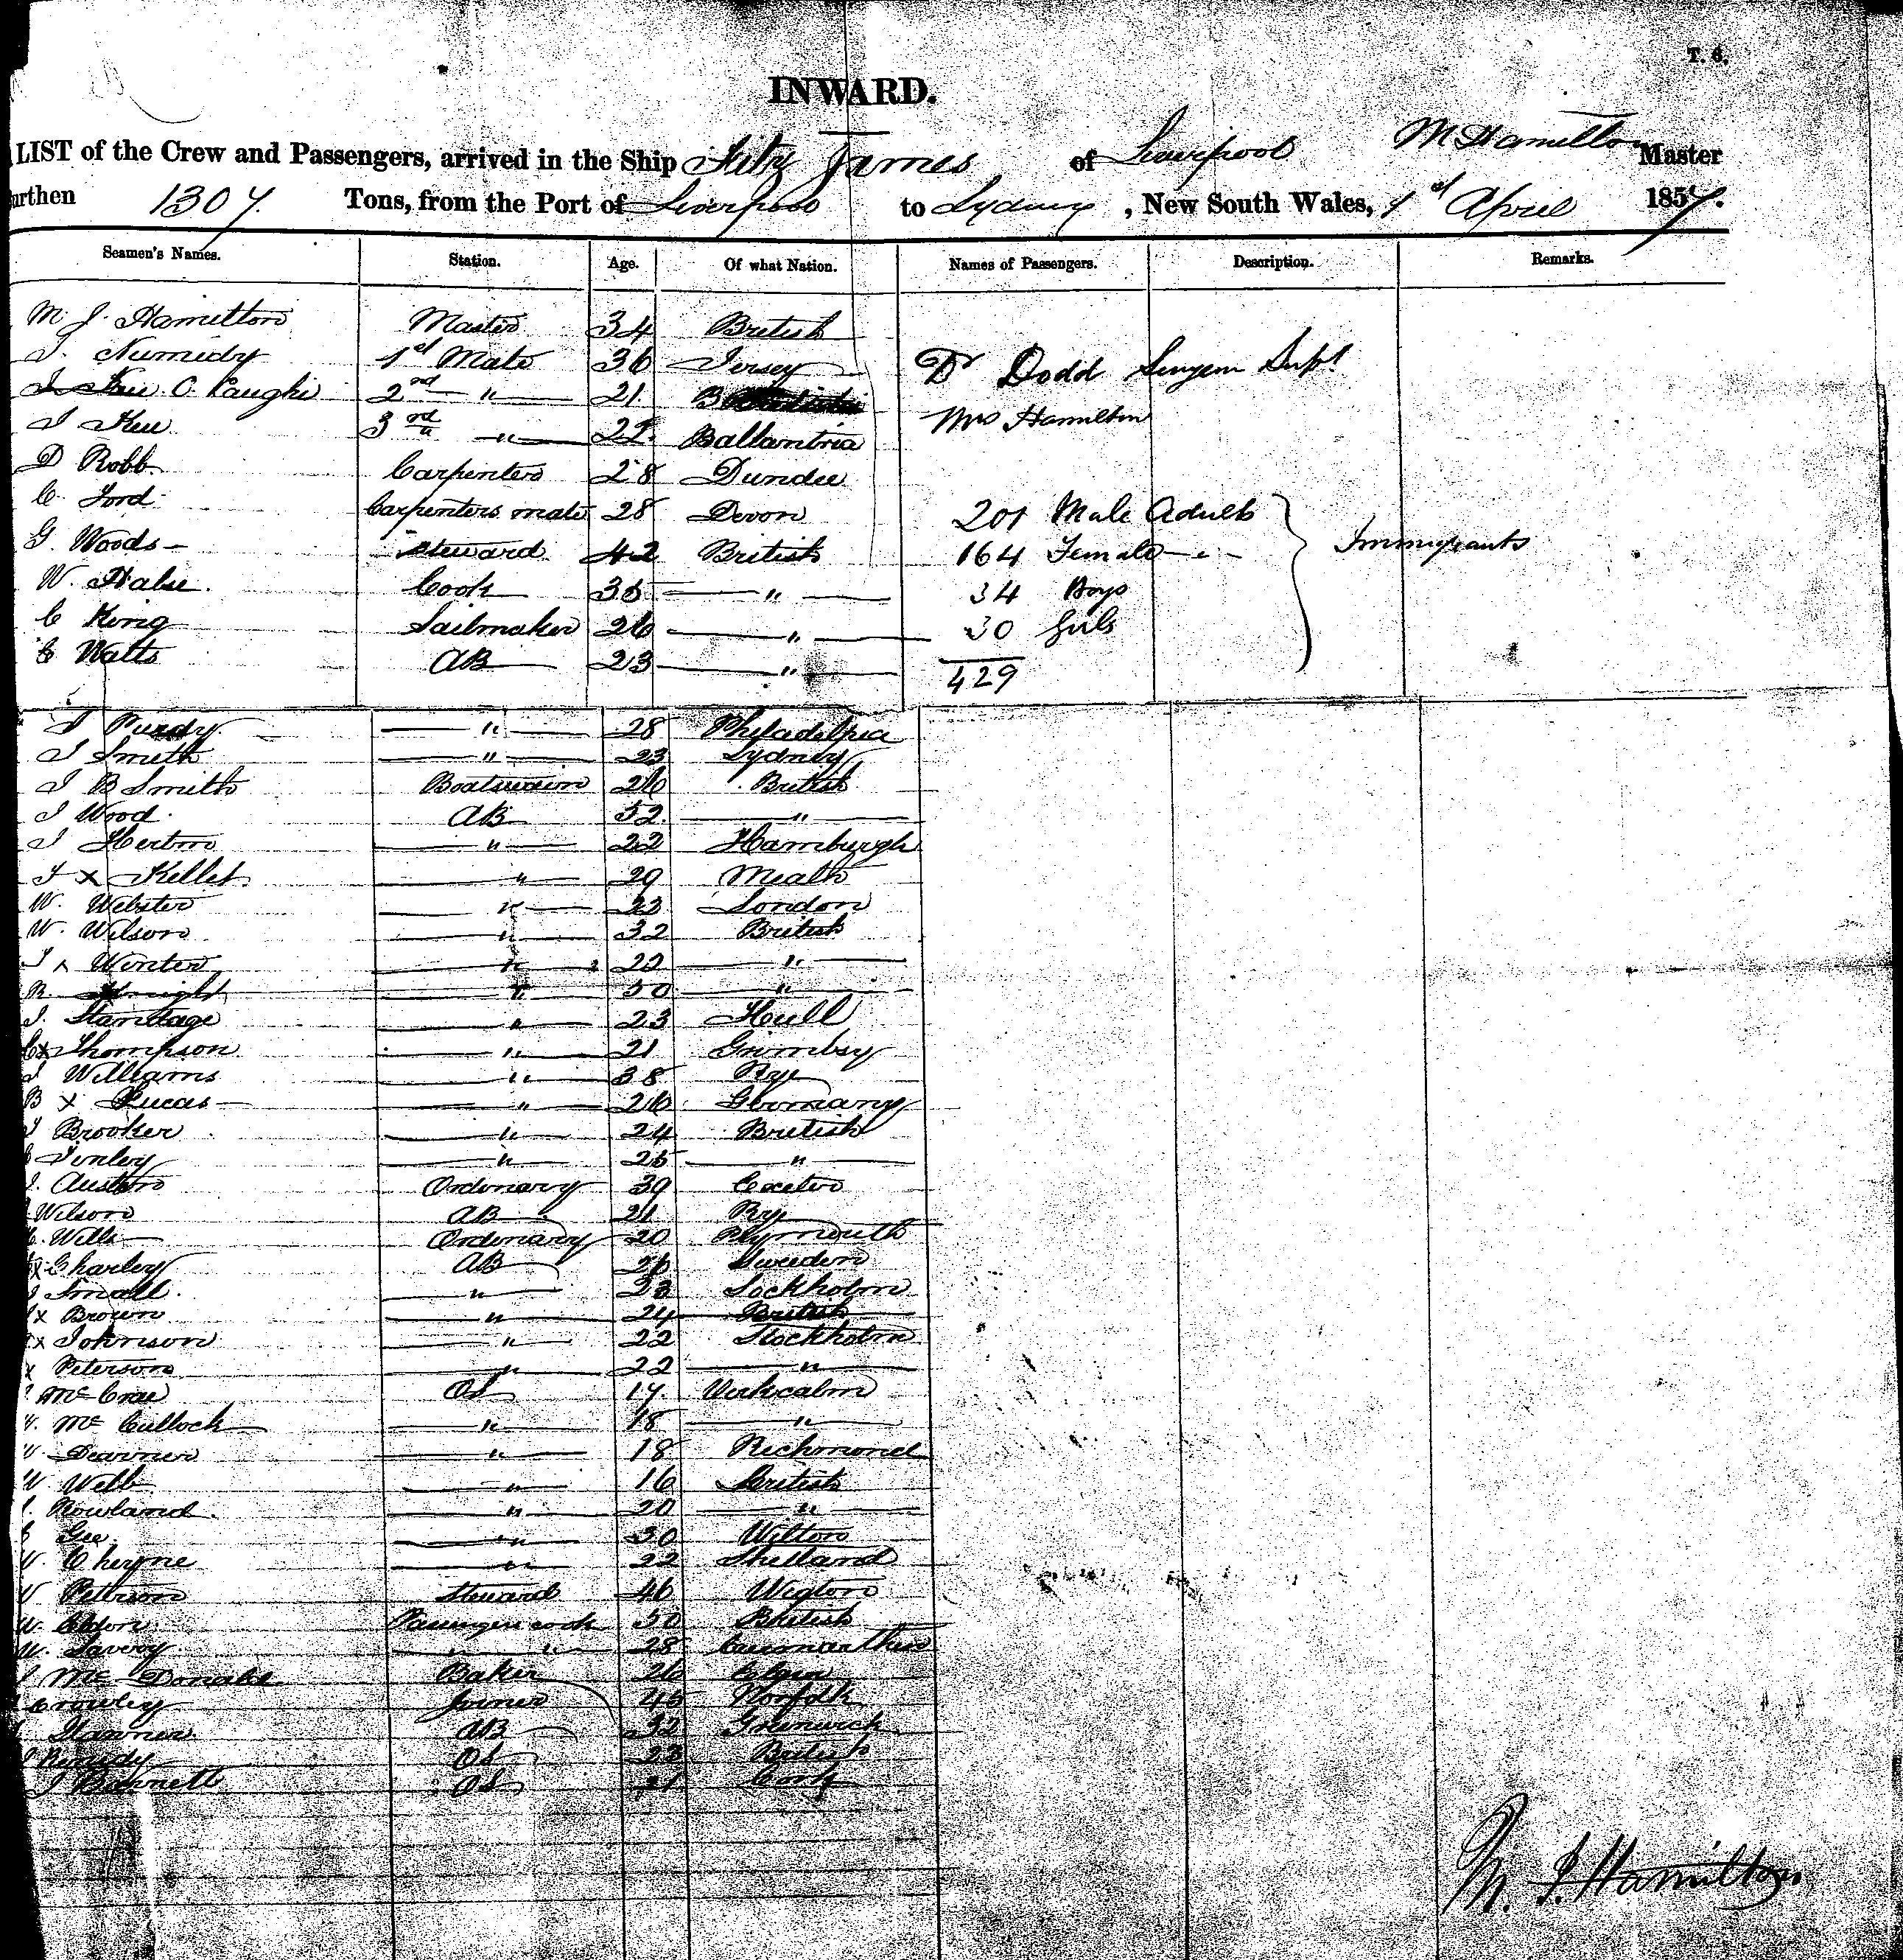 T. 6.
INWARD.
LIST of the Crew and Passengers, arrived in the Ship Fitz James of Liverpool M Hamilton Master
urthen 1307. Tons, from the Port of Liverpool to Sydney, New South Wales, 1st April 1857.
Seamen's Names. Station. Age. Of what Nation. Names of Passengers. Description. Remarks.
M. J. Hamilton Master 34 British
1st Mate 36 Jersey Dr Dodd Surgeon Supt
2nd " 21 Mrs Hamilton
3rd " 22
D Robb Carpenter 28 Dundee
C. Ford Carpenters mate 28 Devon 201 Male Adults
G. Woods Steward 42 British 164 Female " Immigrants
W. Cook " 34 Boys
C King Sailmaker 26 " 30 Girls
C Watts AB 23 " 429
J Purdy " 28 Philadelpia
J Smith " 23 Sydney
J B Smith Boatswain 26 British
J Wood AB 52 "
" 22 Hamburgh
J x Kellet " 29 Meath
W. Webster " 23 London
W. Wilson " 32 British
J x Winter " 22 "
" "
J. " 23 Hull
x Thompson " 21 Grimbsy
J Williams " 38 Rye
B x Lucas " 26 Germany
J Brooker " 24 British
"  "
J. Austin Ordinary 39 Exeter
Wilson AB 21 Rye
Wills Ordinary 20 Plymouth
x Charley AB 26 Sweden
J Small " 23 Sockholm
x Brown " 24 British
x Johnson " 22 Stockholm
x Peterson " 22 "
McCrae OS 17
McCulloch " 18 "
" 18 Richmond
W Webb " 16 British
Rowland " 20 "
Gee " 30 Wilton
W. Cheyne " 22 Shetland
W Steward 46 Wigton
W. Passengers cook 50 British
W. Savory " 28
McDonald Baker 26 Elgin
Crowley Joiner 45 Norfolk
AB 32 Greenwich
OS 23 British
J Barnett OS 21 Cork
M. J. Hamilton